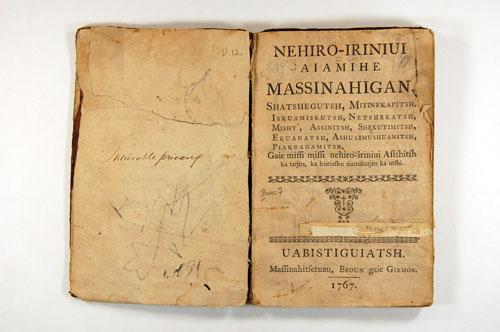 V.12
NEHIRO-IRINIUI
AIAMIHE
MASSINAHIGAN,
SHATSHEGUTSH, MITINEKAPITSH,
ISKUAMISKUTSH, NETSHEKATSH,
MISHT', ASSINITSH, SHEKUTIMITSH,
EKUANATSH, ASHUABMUSHUANITSH,
PIAKUAGAMITSH,
Gaie missi missi nehiro-iriniui Astshitsh
ka tatjits, ka kueiasku aiamihatjits ka utshi.
UABISTIGUIATSH.
Massinahitsetuau, BROUN gaie GIRMOR.
1767.